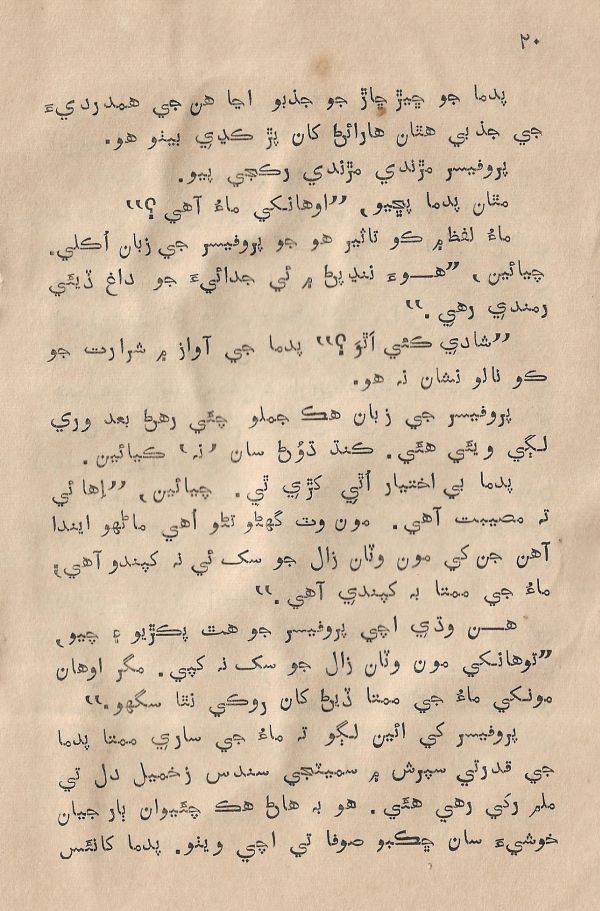 ۲۰
پدما جو چيڙ ڇاڙ جو جذبو اڃا هن جي همدرديءَ
جي جذبي هٿان هارائڻ کان پڙ ڪڍي بيٺو هو.
پروفيسر مڙندي مڙندي رڪجي پيو.
مٿان پدما پڇيو، ”اوهانکي ماءُ آهي؟“
ماءُ لفظ ۾ ڪو تاثير هو جو پروفيسر جي زبان اُڪلي.
چيائين، ”هوءَ ننڍپڻ ۾ ئي جدائيءَ جو داغ ڏيئي
رمندي رهي.“
”شادي ڪئي اٿوَ؟“ پدما جي آواز ۾ شرارت جو
ڪو نالو نشان نہ هو.
پروفيسر جي زبان هڪ جملو چئي رهڻ بعد وري
لڳي ويئي هئي. ڪنڌ ڌوڻڻ سان ’نہ‘ ڪيائين.
پدما بي اختيار اُٿي کڙي ٿي. چيائين، ”اِها ئي
تہ مصيبت آهي. مون وٽ گهڻو تڻو اُهي ماڻهو ايندا
آهن جن کي مون وٽان زال جو سک ئي نہ کپندو آهي؛
ماءُ جي ممتا بہ کپندي آهي.“
هن وڌي اچي پروفيسر جو هٿ پڪڙيو ۽ چيو،
”توهانکي مون وٽان زال جو سک نہ کپي. مگر اوهان
مونکي ماءُ جي ممتا ڏيڻ کان روڪي نٿا سگهو.“
پروفيسر کي ائين لڳو تہ ماءُ جي ساري ممتا پدما
جي قدرتي سپرش ۾ سميٽجي سندس زخميل دل تي
ملم رکي رهي هئي. هو بہ هاڻ هڪ چئيوان ٻار جيان
خوشيءَ سان ڇڪبو صوفا تي اچي ويٺو. پدما کانئس